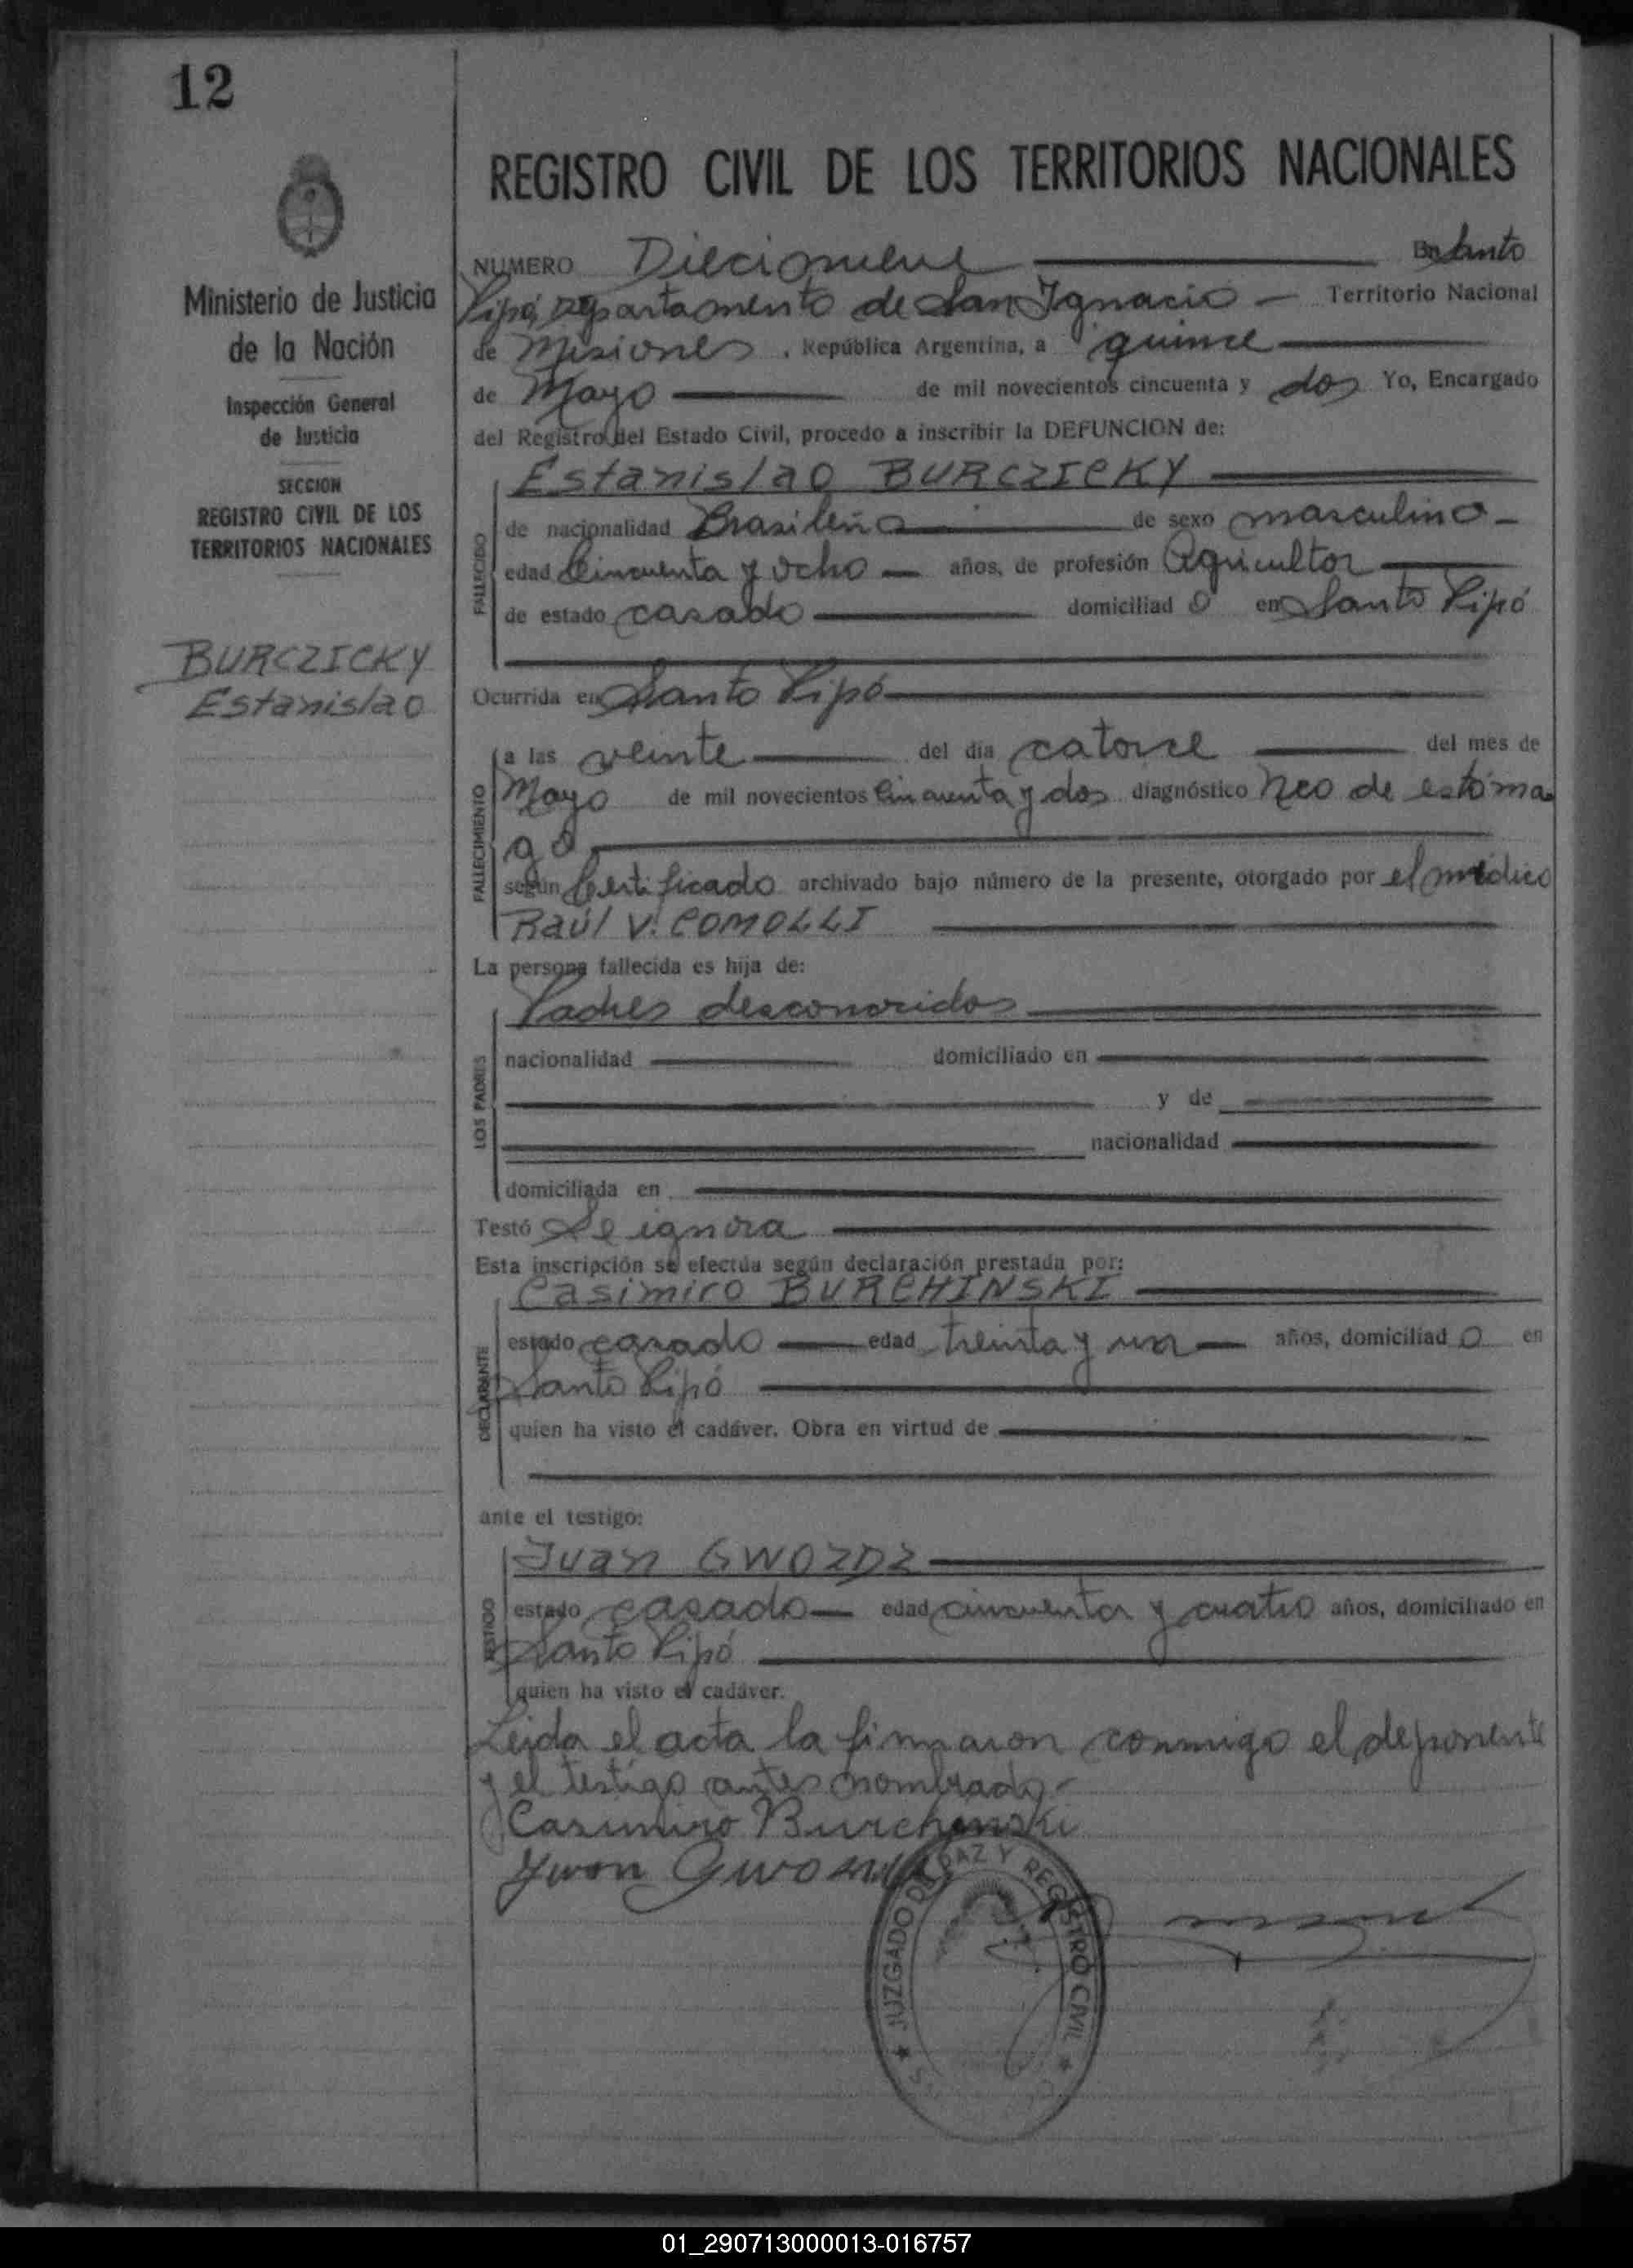 12
REGISTRO CIVIL DE LOS TERRITORIOS NACIONALES
Ministerio de Justicia
de la Nación
Inspección General
de Justicia
SECCION
REGISTRO CIVIL DE LOS
TERRITORIOS NACIONALES
BURCZICKY
Estanislao
NUMERO Diecinueve En Santo
Pipó, Departamento de San Ignacio — Territorio Nacional
de Misiones, República Argentina, a quince
de Mayo de mil novecientos cincuenta y dos Yo, Encargado
del Registro del Estado Civil, procedo a inscribir la DEFUNCION de:
Estanislao BURCZICKY
FALLECIDO
de nacionalidad Brasileña de sexo masculino —
edad Cincuenta y ocho — años, de profesión Agricultor
de estado casado domiciliad o en Santo Pipó
Ocurrida en Santo Pipó
FALLECIMIENTO
a las veinte del día catorce del mes de
Mayo de mil novecientos Cincuenta y dos diagnóstico Neo de estóma
go
según Certificado archivado bajo número de la presente, otorgado por el médico
Raúl V. COMOLLI
La persona fallecida es hija de:
Padres desconocidos
LOS PADRES
nacionalidad domiciliado en
y de
nacionalidad
domiciliada en
Testó Se ignora
Esta inscripción se efectúa según declaración prestada por:
Casimiro BURCHINSKI
DECLARANTE
estado casado — edad treinta y un — años, domiciliad o en
Santo Pipó
quien ha visto el cadáver. Obra en virtud de
ante el testigo:
Juan GWOZDZ
TESTIGO
estado casado — edad cincuenta y cuatro años, domiciliado en
Santo Pipó
quien ha visto el cadáver.
Leida el acta la firmaron conmigo el deponente
y el testigo antes nombrado.-
Casimiro Burchinski
Juan
JUZGADO DE PAZ Y REGISTRO CIVIL
01_290713000013-016757